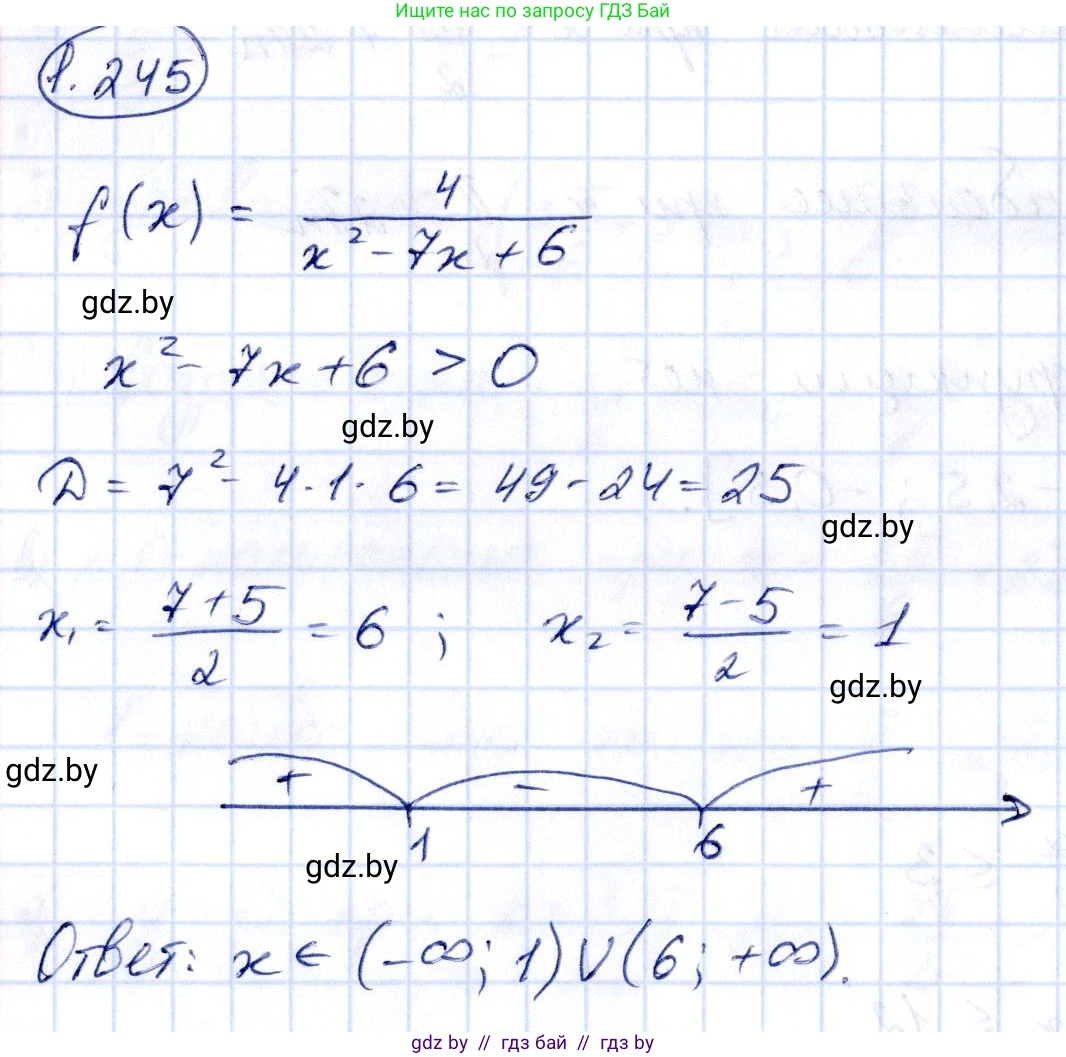 Ищите нас по запросу ГДЗ Бай
1. 245
f(x) = 4 / (x² - 7x + 6)
gdz.by
x² - 7x + 6 > 0
gdz.by
D = 7² - 4·1·6 = 49 - 24 = 25
gdz.by
x₁ = (7+5)/2 = 6 ; x₂ = (7-5)/2 = 1
gdz.by
gdz.by
+ - +
1 6
gdz.by
Ответ: x ∈ (-∞; 1) ∪ (6; +∞).
gdz.by // гдз бай // gdz by